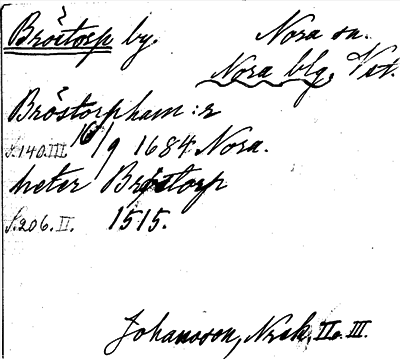 Bröstorp by.
Nora sn.
Nora blg. Vst.
Bröstorpham:r
S.140.III 16/9 1684 Nora.
heter Bröstorp
S.206.II. 1515.
Johansson, Nrsk, II o. III.